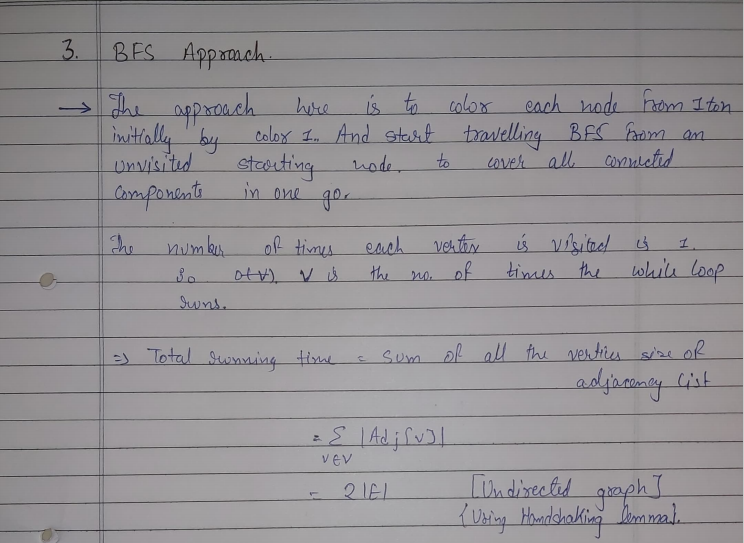 3. BFS Approach.
→ The approach here is to color each node from 1 to n
initially by color 1. And start travelling BFS from an
unvisited starting node. to cover all connected
components in one go.
The number of times each vertex is visited is 1.
So O(V). V is the no. of times the while loop
runs.
=> Total running time = sum of all the vertices size of
adjacency list
= Σ |Adj[v]|
v∈V
= 2|E| [Undirected graph]
{Using Handshaking Lemma}.